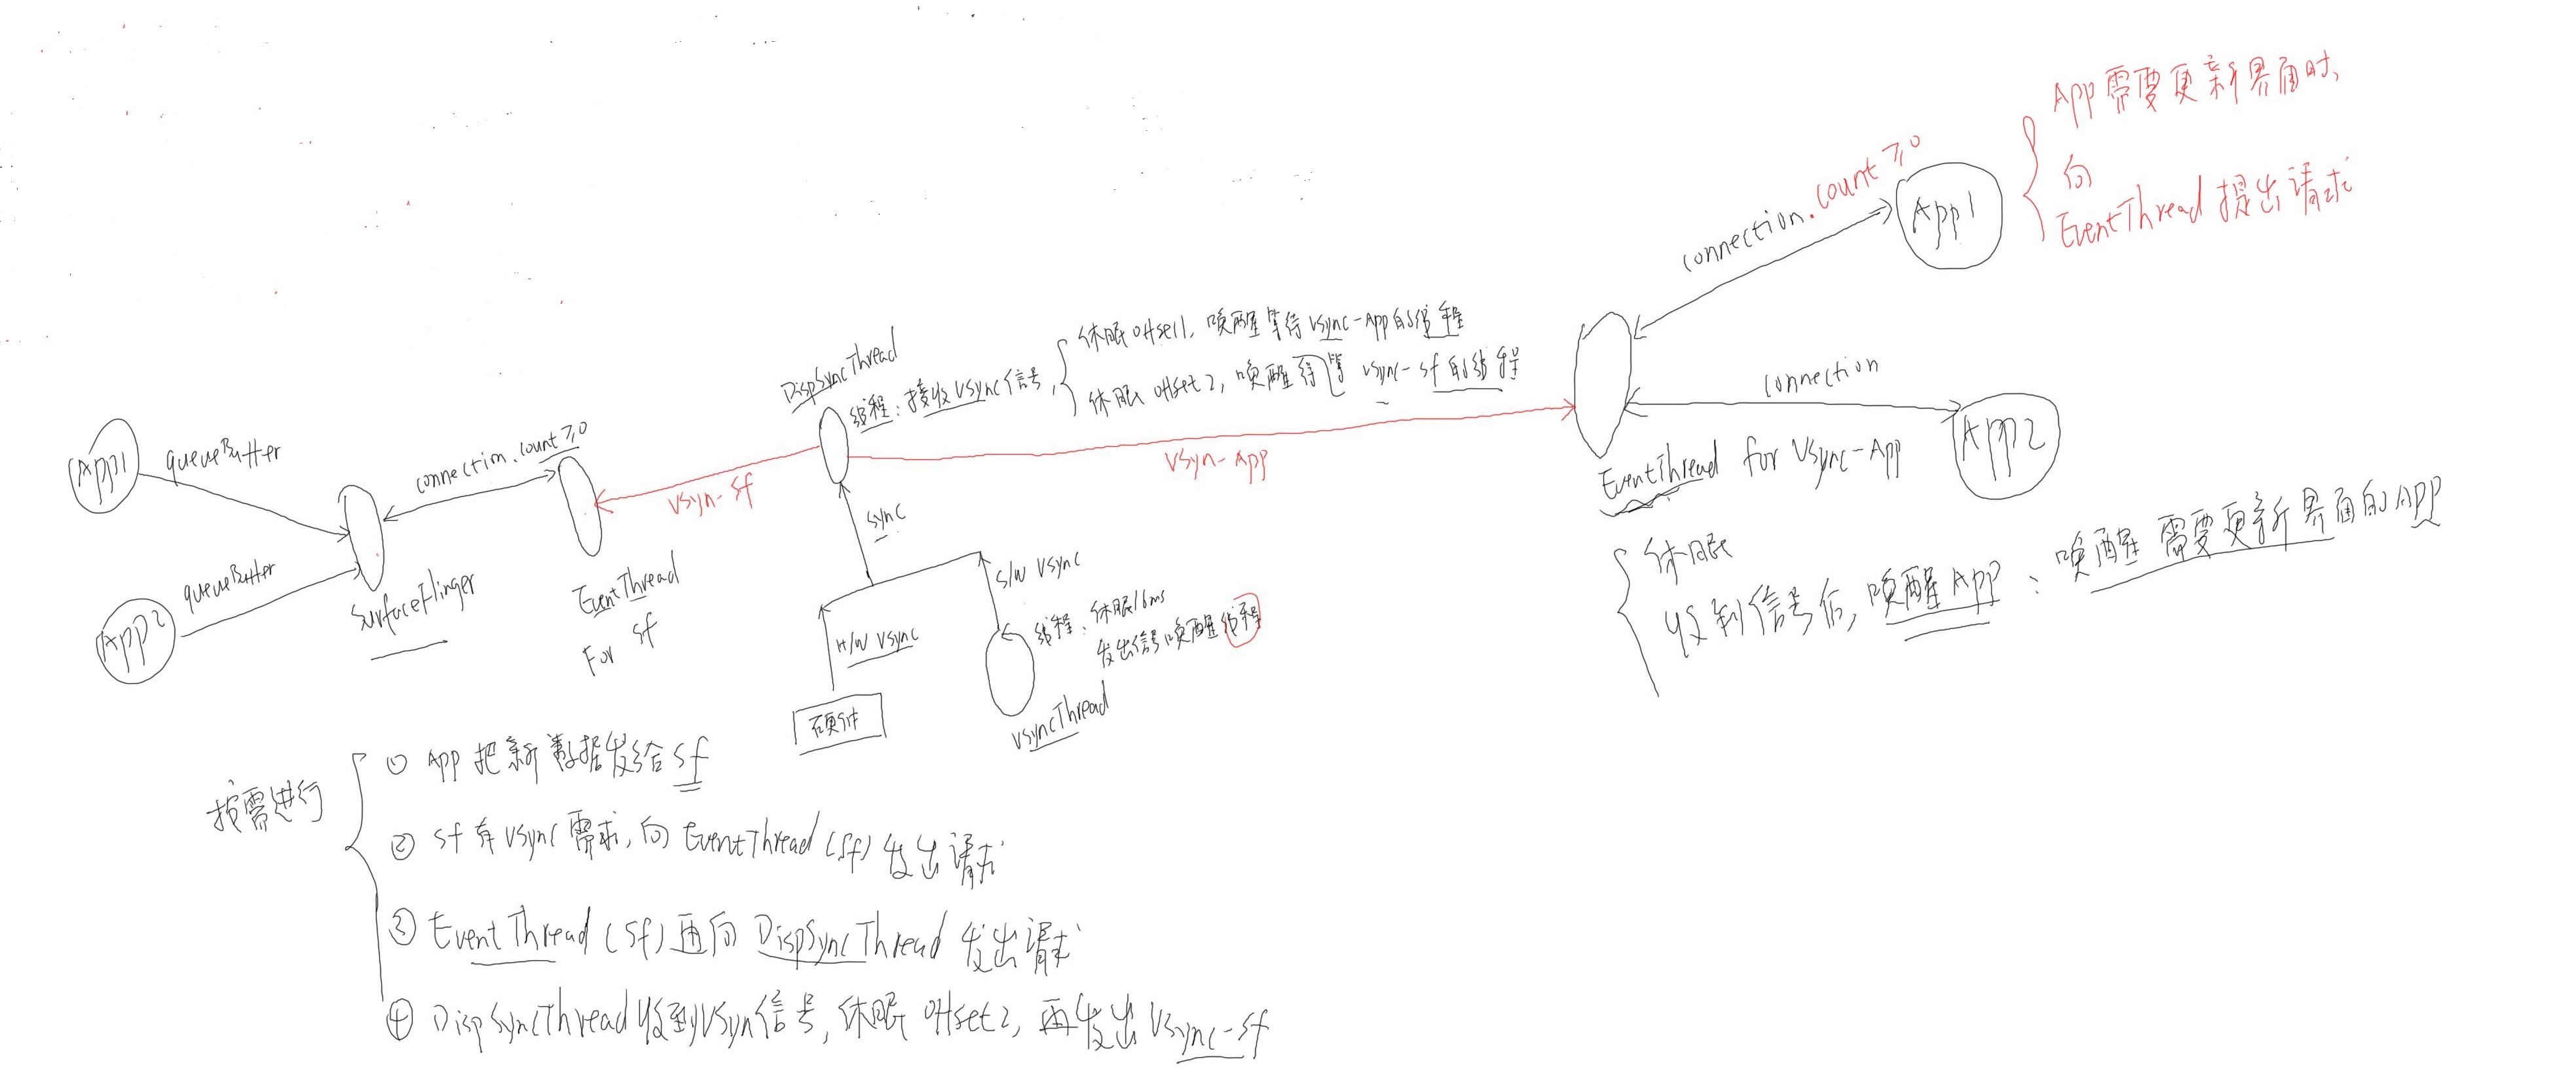 App需要更新界面时,
向
EventThread 提出请求
connection.count≥0
App1
DispSyncThread
线程:接收VSync信号,
休眠offset1, 唤醒等待Vsync-App的线程
休眠 offset2, 唤醒得等 Vsync-sf的线程
connection
App2
App1
queueBuffer
connection.count≥0
Vsyn-sf
Vsyn-App
EventThread for Vsync-App
queueBuffer
App2
SurfaceFlinger
EventThread
For sf
sync
S/W Vsync
H/W Vsync
线程:休眠16ms
发出信号唤醒线程
硬件
VsyncThread
休眠
收到信号后,唤醒App:唤醒需要更新界面的APP
按需进行
① App 把新数据发给sf
② sf 有Vsync需求, 向 EventThread (sf) 发出请求
③ EventThread (sf) 再向 DispSyncThread 发出请求
④ DispSyncThread收到Vsyn信号, 休眠 offset2, 再发出 Vsync-sf